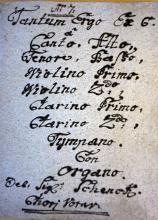 Nº 4
Tantum Ergo Ex C.
a
Canto, Alto,
Tenore, Basso,
Violino Primo,
Violino 2do,
Clarino Primo,
Clarino 2do,
Tympano.
Con
Organo.
Del Sigr Schenck.